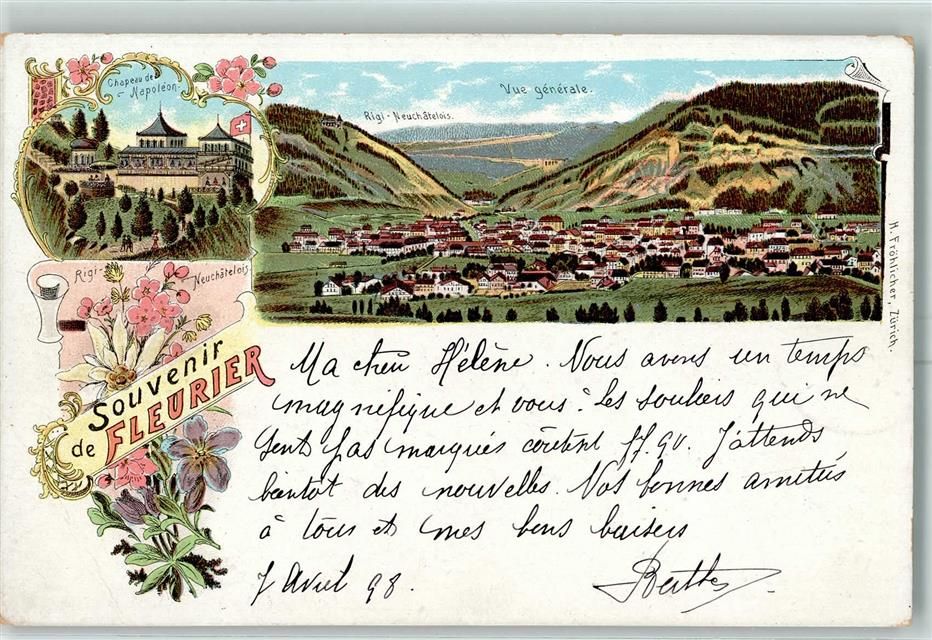 Chapeau de
Napoléon.
Rigi-Neuchâtelois.
Vue générale.
Rigi-
Neuchâtelois
H. Fröhlicher, Zürich.
Souvenir
de FLEURIER
Ma chère Hélène. Nous avons un temps
magnifique et vous? Les souliers qui ne
sont pas marqués coûtent ff. 90. J'attends
bientôt des nouvelles. Nos bonnes amitiés
à tous et mes bons baisers
7 Avril 98.
Berthe